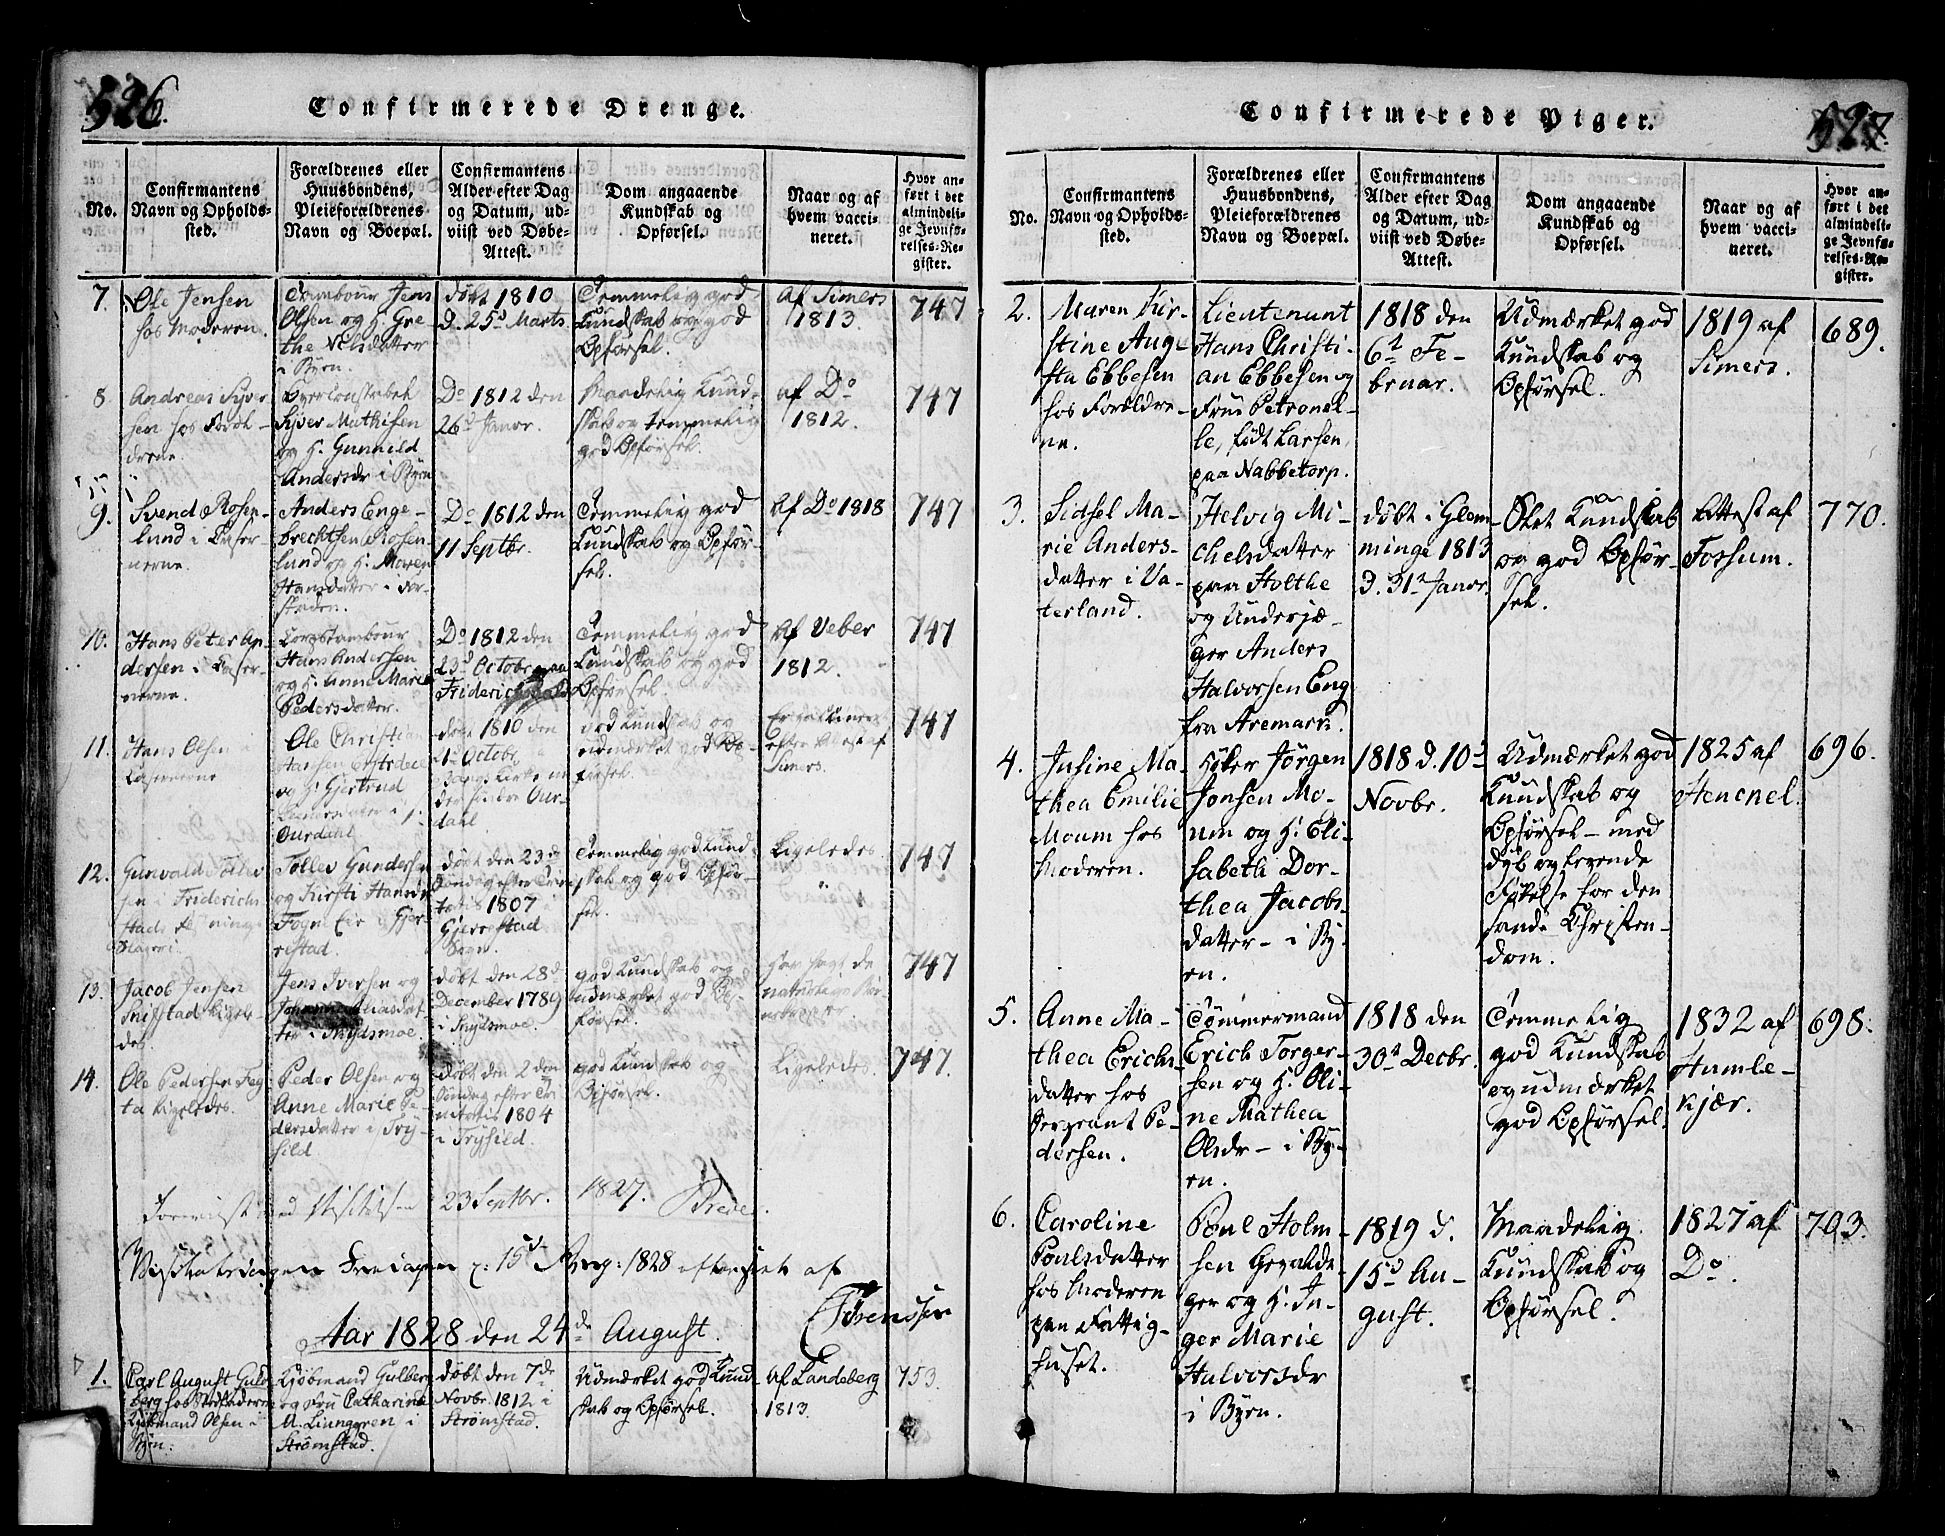 526.
Confirmerede Drenge.
No.
Confirmantens
Navn og Opholds-
sted.
Forældrenes eller
Huusbondens,
Pleieforældrenes
Navn og Boepæl.
Confirmantens
Alder efter Dag
og Datum, ud-
viist ved Døbe-
Attest.
Dom angaaende
Kundskab og
Opførsel.
Naar og af
hvem vacci-
neret.
Hvor an-
ført i det
almindeli-
ge Jevnfø-
relses-Re-
gister.
7.
Ole Jensen
hos Moderen.
Tambour Jens
Olsen og H. Gre-
the Nelsdatter
i Byen.
døbt 1810
d. 25d Marts
Temmelig god
Kundskab og god
Opførsel.
Af Simers
1813.
747
8
Andreas Siver
sen hos Foræl-
drene.
Siver Mathisen
og H. Gunnild
Andersdr i Byen
Do 1812 den
26d Janvr.
Maadelig Kund-
skab og temmelig
god Opførsel.
af Do
1812.
747
9.
Svend Rosen-
lund i Caser
nerne.
Anders Enge-
brechtsen Rosen
lund og H. Maren
Hansdatter i For-
staden.
Do 1812 den
11 Septbr.
Temmelig god
Kundskab og Opfør-
sel.
Af Do 1818
747
10.
Hans Peter An
dersen i Caser-
nerne.
Corpstambour
Hans Andersen
og H. Anne Marie
Pedersdatter.
Do 1812 den
23d Octobr paa
Friderichshald
Temmelig god
Kundskab og god
Opførsel.
Af Veber
1812.
747
11.
Hans Olsen i
Casernerne
Ole Christian
Hansen
og H. Gjertrud
Ourdahl
døbt 1810 den
1d Octobr
dahl.
god Kundskab og
udmærket god Op-
førsel.
Er vaccineret
efter Attest af
Simers.
747
12.
Gunvald Tolles
sen i Friderich
stads Fæstnings
Slaveri.
Tolles Gunders
og Kirsti Hansdr
Gjer-
restad.
døbt den 23de
Søndag efter Trini
tatis 1807
Gjerrestad
Sogn.
Temmelig god Kund
skab og god Opfør-
sel.
Ligeledes
747
13.
Jacob Jensen
Snistad ligele-
des.
Jens Iversen og
Johanne Eliasdat-
ter i Snydsmoe.
døbt den 28d
December 1789
i Snydsmoe.
god Kundskab og
udmærket god Op-
førsel.
har havt de
naturlige Bør-
747
14.
Ole Pedersen Teg
ta ligeledes.
Peder Olsen og
Anne Marie Pe-
dersdatter i Try-
sild
døbt den 2den
Søndag efter Tri
nitatis 1804
i Trysild.
god Kundskab og
Opførsel.
Ligeledes.
747.
Foreviist ved Visitatsen 23 Septbr. 1827.
Visitatsdagen Fredagen d. 15d Aug: 1828 efterseet af
Sørenssen
Aar 1828 den 24de August.
1.
Carl August Guld
berg hos
Kjøbmand Olsen i
Byen.
Kjøbmand Gulberg
og Frue Catharina
M. Liunggren i
Strømstad.
døbt den 7de
Novbr. 1812 i
Strømstad.
Udmærket god Kund-
skab og Opførsel.
Af Landeberg
1813.
753.
527.
Confirmerede Piger.
No.
Confirmantens
Navn og Opholds-
sted.
Forældrenes eller
Huusbondens,
Pleieforældrenes
Navn og Boepæl.
Confirmantens
Alder efter Dag
og Datum, ud-
viist ved Døbe-
Attest.
Dom angaaende
Kundskab og
Opførsel.
Naar og af
hvem vacci-
neret.
Hvor an-
ført i det
almindeli-
ge Jevnfø-
relses-Re-
gister.
2.
Maren Kir-
stine Augu
sta Ebbesen
hos Forældre-
ne.
Lieutenant
Hans Christi-
an Ebbesen og
Frue Petronel-
le, født Larsen
paa Nabbetorp.
1818 den
6t Fe-
bruar.
Udmærket god
Kundskab og
Opførsel.
1819 af
Simers.
689.
3.
Sidsel Ma-
rie Anders-
datter i Va-
terland.
Helvig Mi-
chelsdatter
paa Holthe
og Underjæ-
ger Anders
Halvorsen Eng
fra Aremark.
døbt i Glem-
minge 1813
d. 31t Janvr.
Slet Kundskab
og god Opfør-
sel.
Attest af
Fossum.
770.
4.
Jusine Ma-
thea Emilie
Moum hos
Moderen.
Høker Jørgen
Jonsen Mo-
um og H. Eli-
sabeth Dor-
thea Jacobs-
datter - i By-
en.
1818 d. 10d
Novbr.
Udmærket god
Kundskab og
Opførsel - med
dyb og levende
Følelse for den
sande Christen-
dom.
1825 af
Henchel.
696.
5.
Anne Ma-
thea Erichs-
datter hos
Sergeant Pe-
dersen.
Tømmermand
Erich Torger-
sen og H. Oli-
ne Mathea
Olsdr - i By-
en.
1818 den
30t Decbr.
Temmelig
god Kundskab
og udmærket
god Opførsel.
1832 af
Humle-
kjær.
698.
6.
Caroline
Poulsdatter
hos Moderen
paa Fattig-
huset.
Poul Holm-
sen Gevalde-
ger og H. In-
ger Marie
Halvorsdr
i Byen.
1819 d.
15d Au-
gust.
Maadelig
Kundskab og
Opførsel.
1827 af
Do.
703.